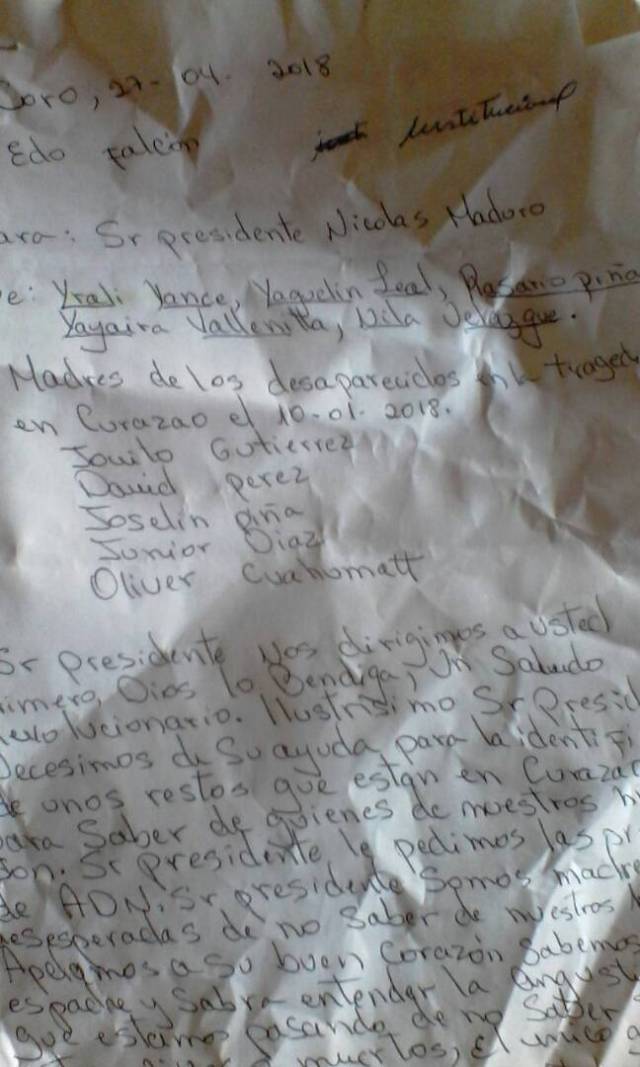 Coro, 27-04-2018
Edo falcón institucional
ara: Sr presidente Nicolas Maduro
e: Yrali Yance, Yaquelin Leal, Rosario piña
Yayaira Vallenilla, Nila Velazque.
Madres de los desaparecidos en la traged
en Curazao el 10-01-2018.
Jouilo Gutierrez
David perez
Joselin piña
Junior Diaz
Oliver Cuahomatt
Sr presidente Nos dirigimos a usted
rimero, Dios lo Bendiga, Un Saludo
evolucionario. Ilustrisimo Sr Presid
Necesimos de Su ayuda para la identifi
de unos restos que estan en Curazao
para Saber de quienes de nuestros
Son. Sr presidente le pedimos las pr
de ADN. Sr presidente Somos madre
desesperadas de no saber de nuestros
Apelamos a Su buen Corazón Sabemos
es padre y Sabra entender la angusti
que estamos pasando de no Saber
muertos, el unico